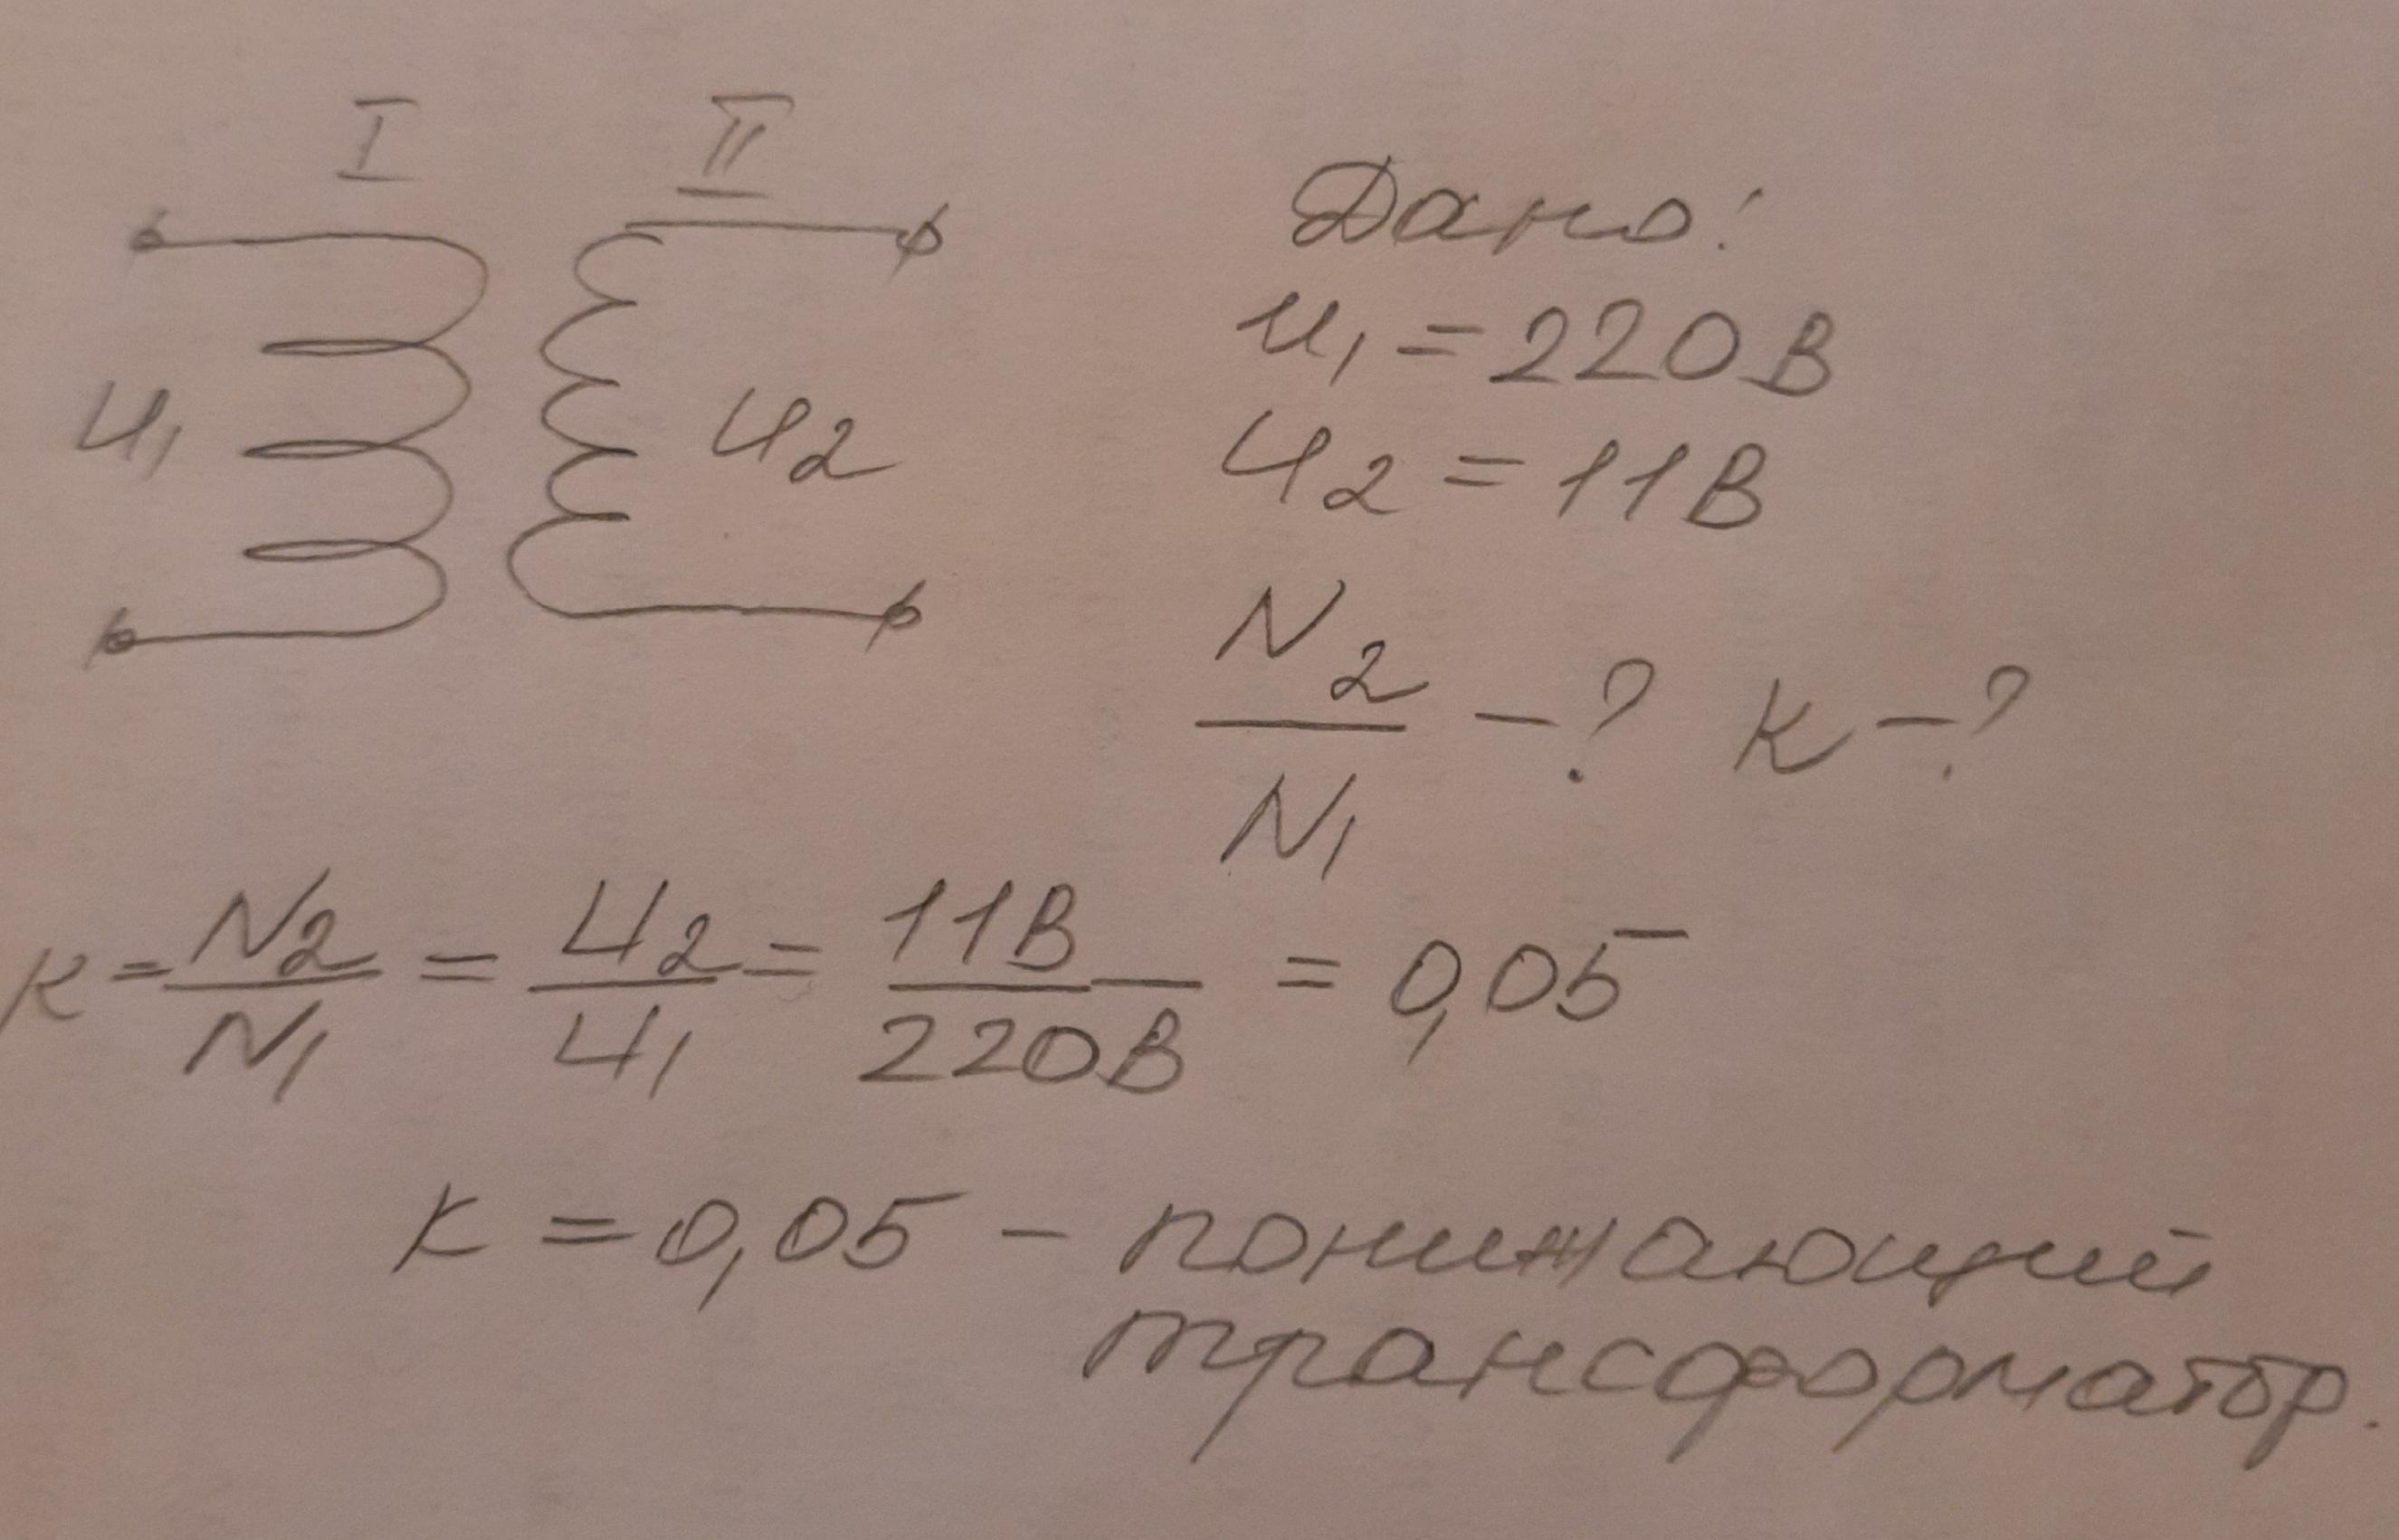 I II
U₁ U₂
Дано:
U₁ = 220 В
U₂ = 11 В
N₂/N₁ - ? K - ?
K = N₂/N₁ = U₂/U₁ = 11 В/220 В = 0,05
K = 0,05 - понижающий
трансформатор.